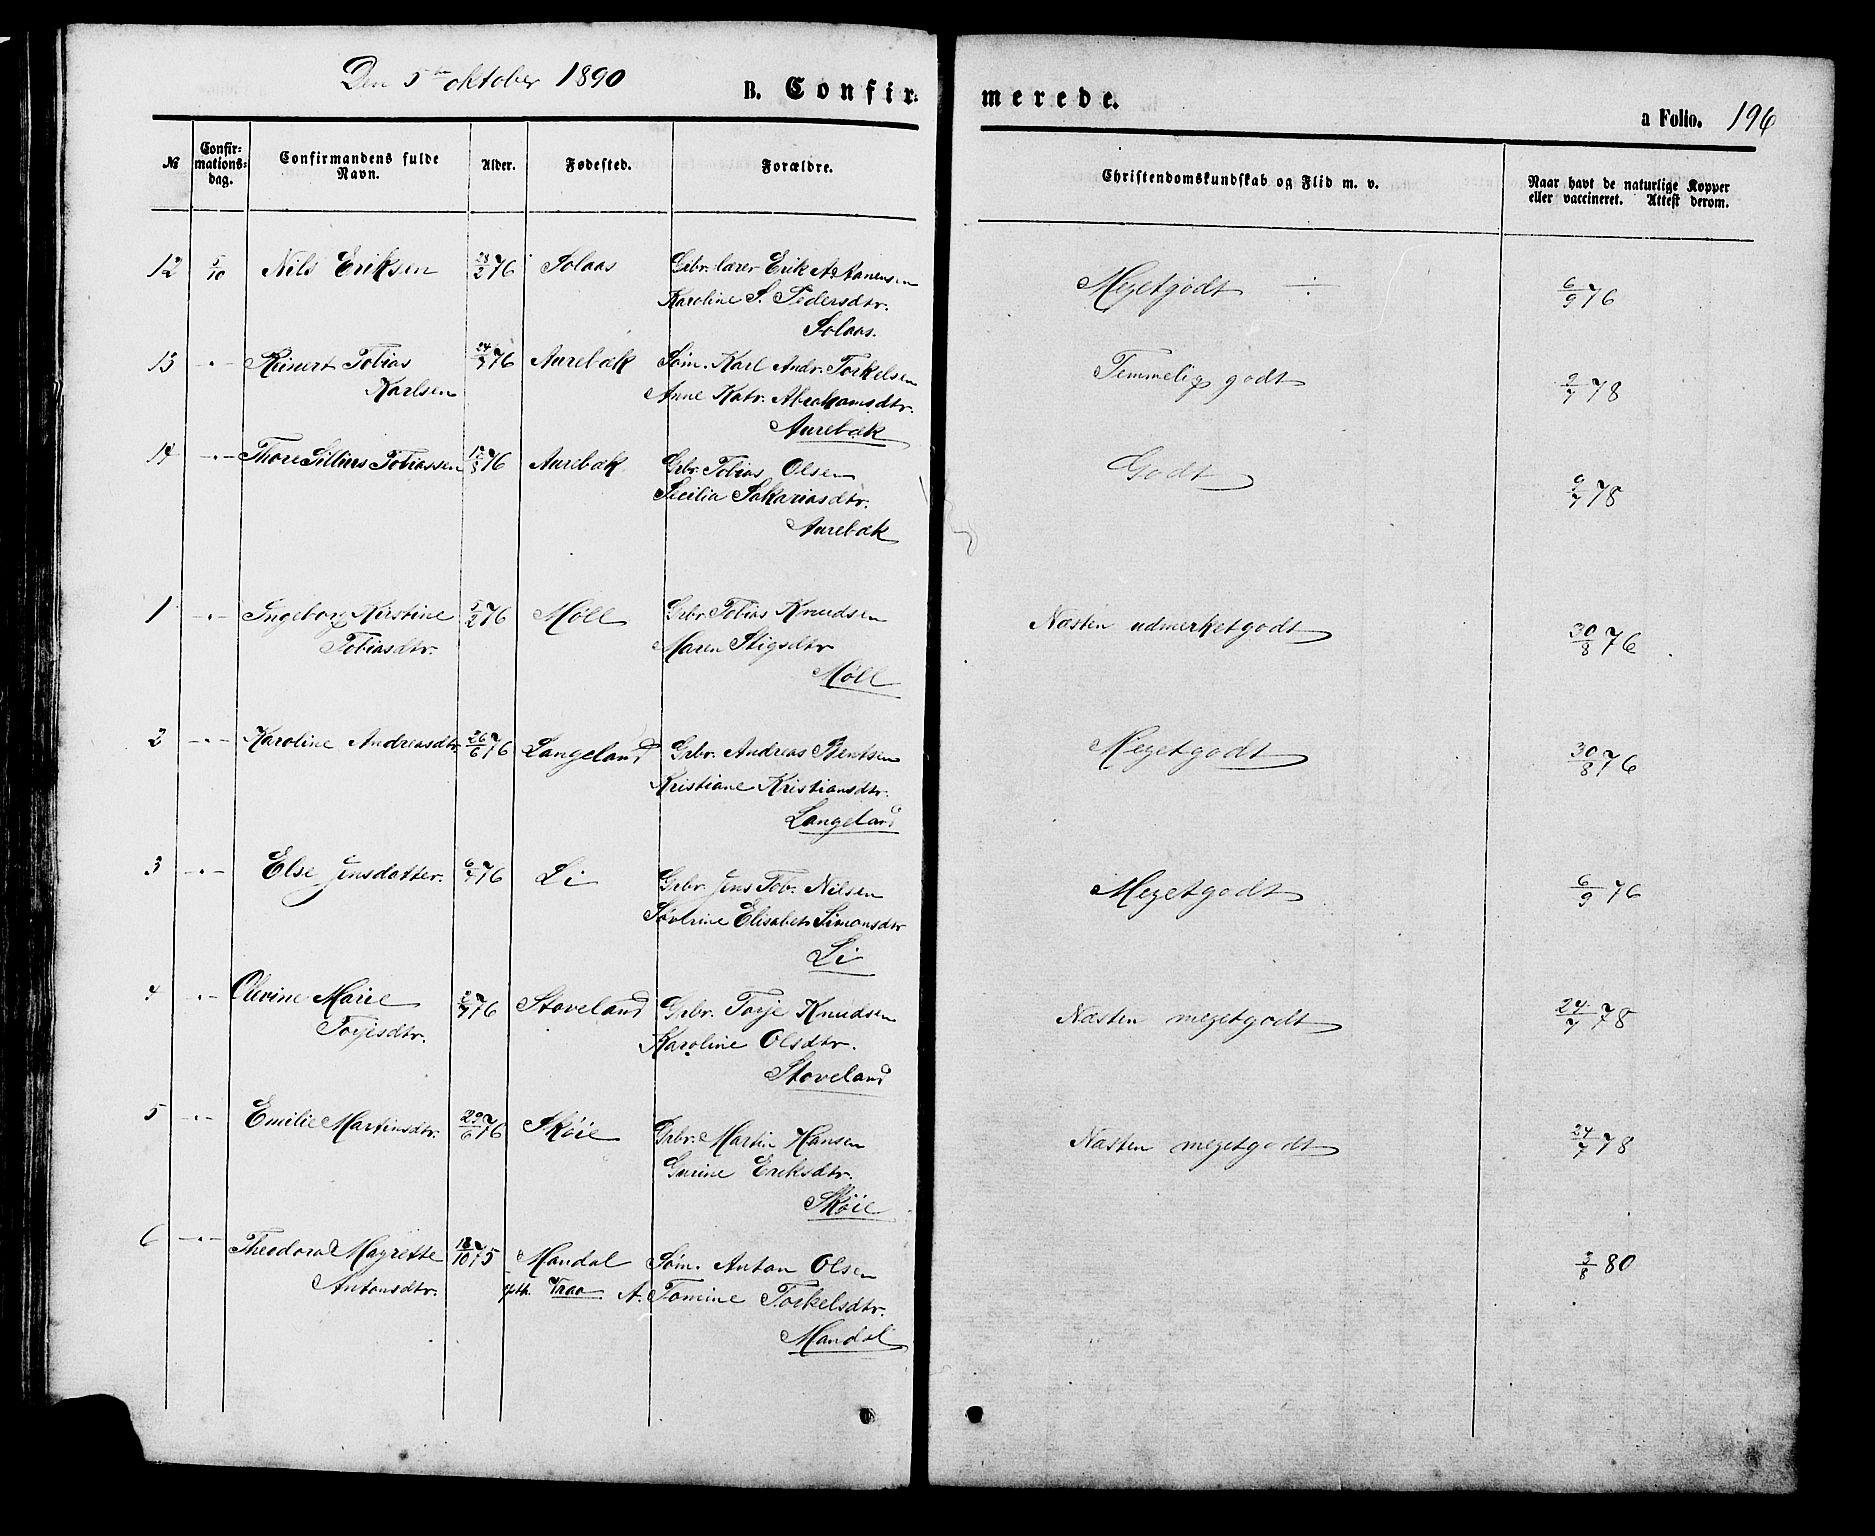 Den 5te oktober 1890
B. Confir-
merede.
a Folio. 196
№
Confir-
mations-
dag.
Confirmandens fulde
Navn.
Alder.
Fødested.
Forældre.
Christendomskundskab og Flid m. v.
Naar havt de naturlige Kopper
eller vaccineret. Attest derom.
12 5/10 Nils Eriksen 28/2 76 Solaas Gbr. lærer Erik A. Aanensen
Karoline S. Pedersdtr.
Solaas.
Megetgodt ÷ 6/9 76
13 -"- Reinert Tobias 76 Aurebæk Søm. Karl Andr. Torkelsen
Karlsen Anne Katr. Abrahamsdtr.
Aurebæk
Temmelig godt 9/7 78
14 -"- Thore Tobiassen 76 Aurebæk Grbr. Tobias Olsen
Secilia Sakariasdtr.
Aurebæk
Godt 9/7 78
1 -"- Ingeborg Kirstine 5/2 76 Møll Grbr. Tobias Knudsen
Tobiasdtr. Maren Stigsdtr
Møll
Næsten udmerketgodt 30/8 76
2 -"- Karoline Andreasdtr 26/6 76 Langeland Grbr. Andreas Bentsen
Kristiane Kristiansdtr.
Langeland
Megetgodt 30/8 76
3 -"- Else Jensdatter. 6/7 76 Li Grbr. Jens Tob. Nilsen
Elisabet Simonsdtr
Li
Megetgodt 6/9 76
4 -"- Olevine Marie 76 Stoveland Grbr. Torje Knudsen
Torjesdtr. Karoline Olsdtr.
Stoveland
Næsten megetgodt 24/7 78
5 -"- Emilie Martinsdtr. 29/6 76 Skøie Grbr. Martin Hansen
Gurine Eriksdtr.
Skøie
Næsten megetgodt 24/7 78
6 -"- Theodora Magrette 18/10 75 Mandal Søm. Anton Olsen
Antonsdtr. A. Tomine Torkelsdtr.
Mandal
3/8 80